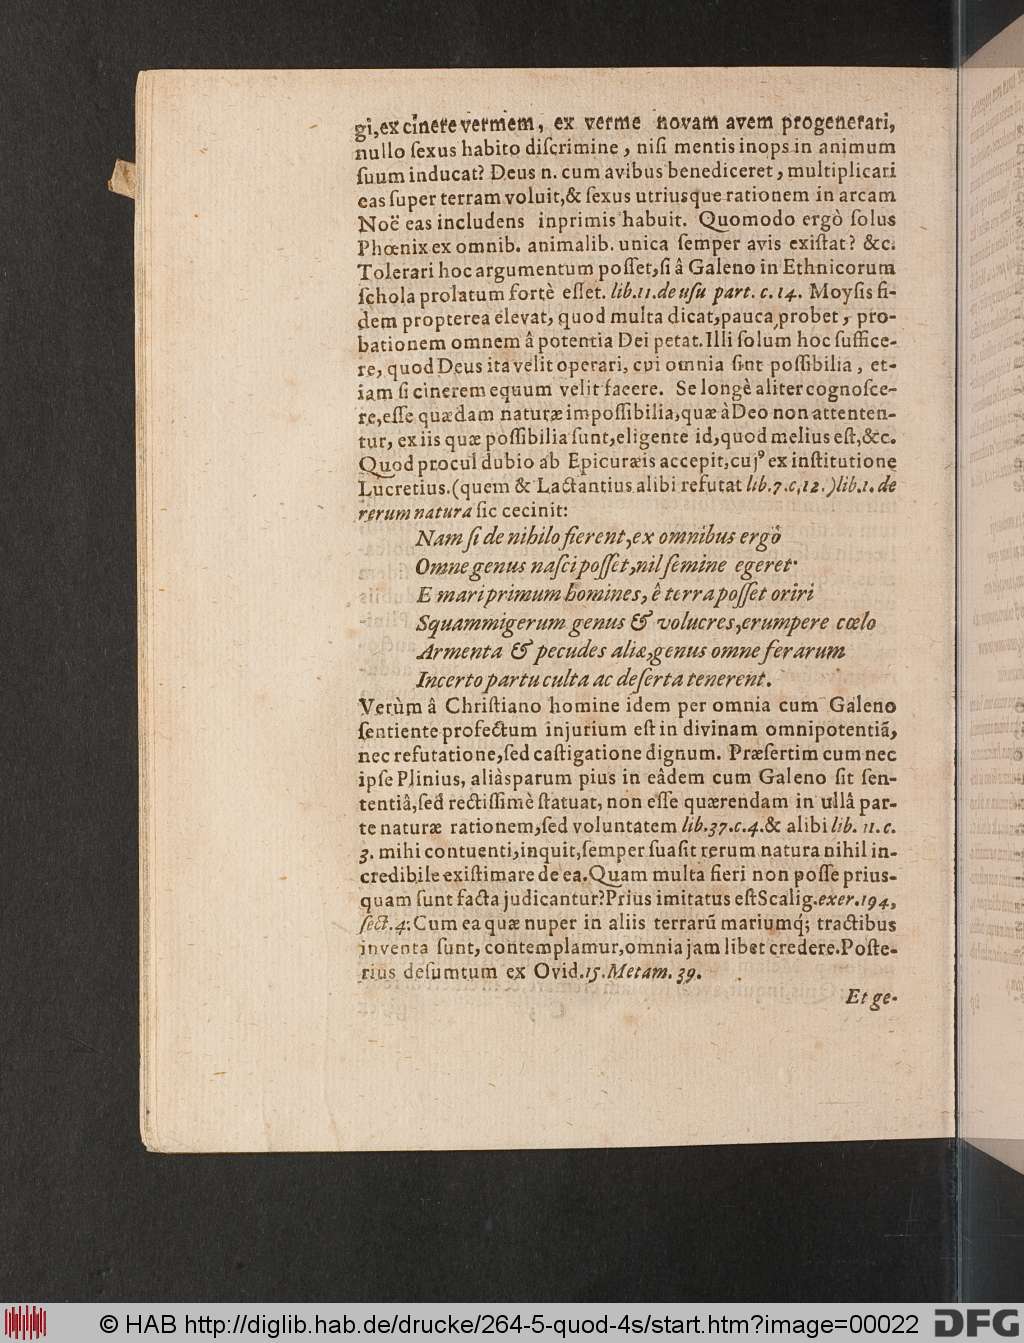 gi,ex cinere vermem, ex verme novam avem progenerari,
nullo ſexus habito diſcrimine, niſi mentis inops in animum
ſuum inducat? Deus n. cum avibus benediceret, multiplicari
eas ſuper terram voluit,& ſexus utriusque rationem in arcam
Noë eas includens inprimis habuit. Quomodo ergò ſolus
Phœnix ex omnib. animalib. unica ſemper avis exiſtat? &c.
Tolerari hoc argumentum poſſet,ſi â Galeno in Ethnicorum
ſchola prolatum fortè eſſet. lib.11.de uſu part. c. 14. Moyſis fi-
dem propterea elevat, quod multa dicat,pauca probet, pro-
bationem omnem â potentia Dei petat.Illi ſolum hoc ſuffice-
re, quod Deus ita velit operari, cui omnia ſint poſſibilia, et-
iam ſi cinerem equum velit facere. Se longè aliter cognoſce-
re,eſſe quædam naturæ impoſſibilia,quæ à Deo non attenten-
tur, ex iis quæ poſſibilia ſunt,eligente id,quod melius eſt,&c.
Quod procul dubio ab Epicuræis accepit,cujꝰ ex inſtitutione
Lucretius.(quem & Lactantius alibi refutat lib.7.c,12.)lib.1. de
rerum natura ſic cecinit:
Nam ſi de nihilo fierent,ex omnibus ergò
Omne genus naſci poſſet,nil ſemine egeret·
E mari primum homines, ê terra poſſet oriri
Squammigerum genus & volucres,erumpere cœlo
Armenta & pecudes aliæ,genus omne ferarum
Incerto partu culta ac deſerta tenerent.
Verùm â Chriſtiano homine idem per omnia cum Galeno
ſentiente profectum injurium eſt in divinam omnipotentiã,
nec refutatione,ſed caſtigatione dignum. Præſertim cum nec
ipſe Plinius, aliàs parum pius in eâdem cum Galeno ſit ſen-
tentiâ,ſed rectiſſimè ſtatuat, non eſſe quærendam in ullâ par-
te naturæ rationem,ſed voluntatem lib.37.c.4.& alibi lib. 11. c.
3. mihi contuenti,inquit,ſemper ſuaſit rerum natura nihil in-
credibile exiſtimare de ea.Quam multa fieri non poſſe prius-
quam ſunt facta judicantur?Prius imitatus eſt Scalig.exer.194,
ſect.4:Cum ea quæ nuper in aliis terrarũ mariumq́; tractibus
inventa ſunt, contemplamur,omnia jam libet credere.Poſte-
rius deſumtum ex Ovid.15.Metam. 39.
Et ge-
© HAB http://diglib.hab.de/drucke/264-5-quod-4s/start.htm?image=00022
DFG